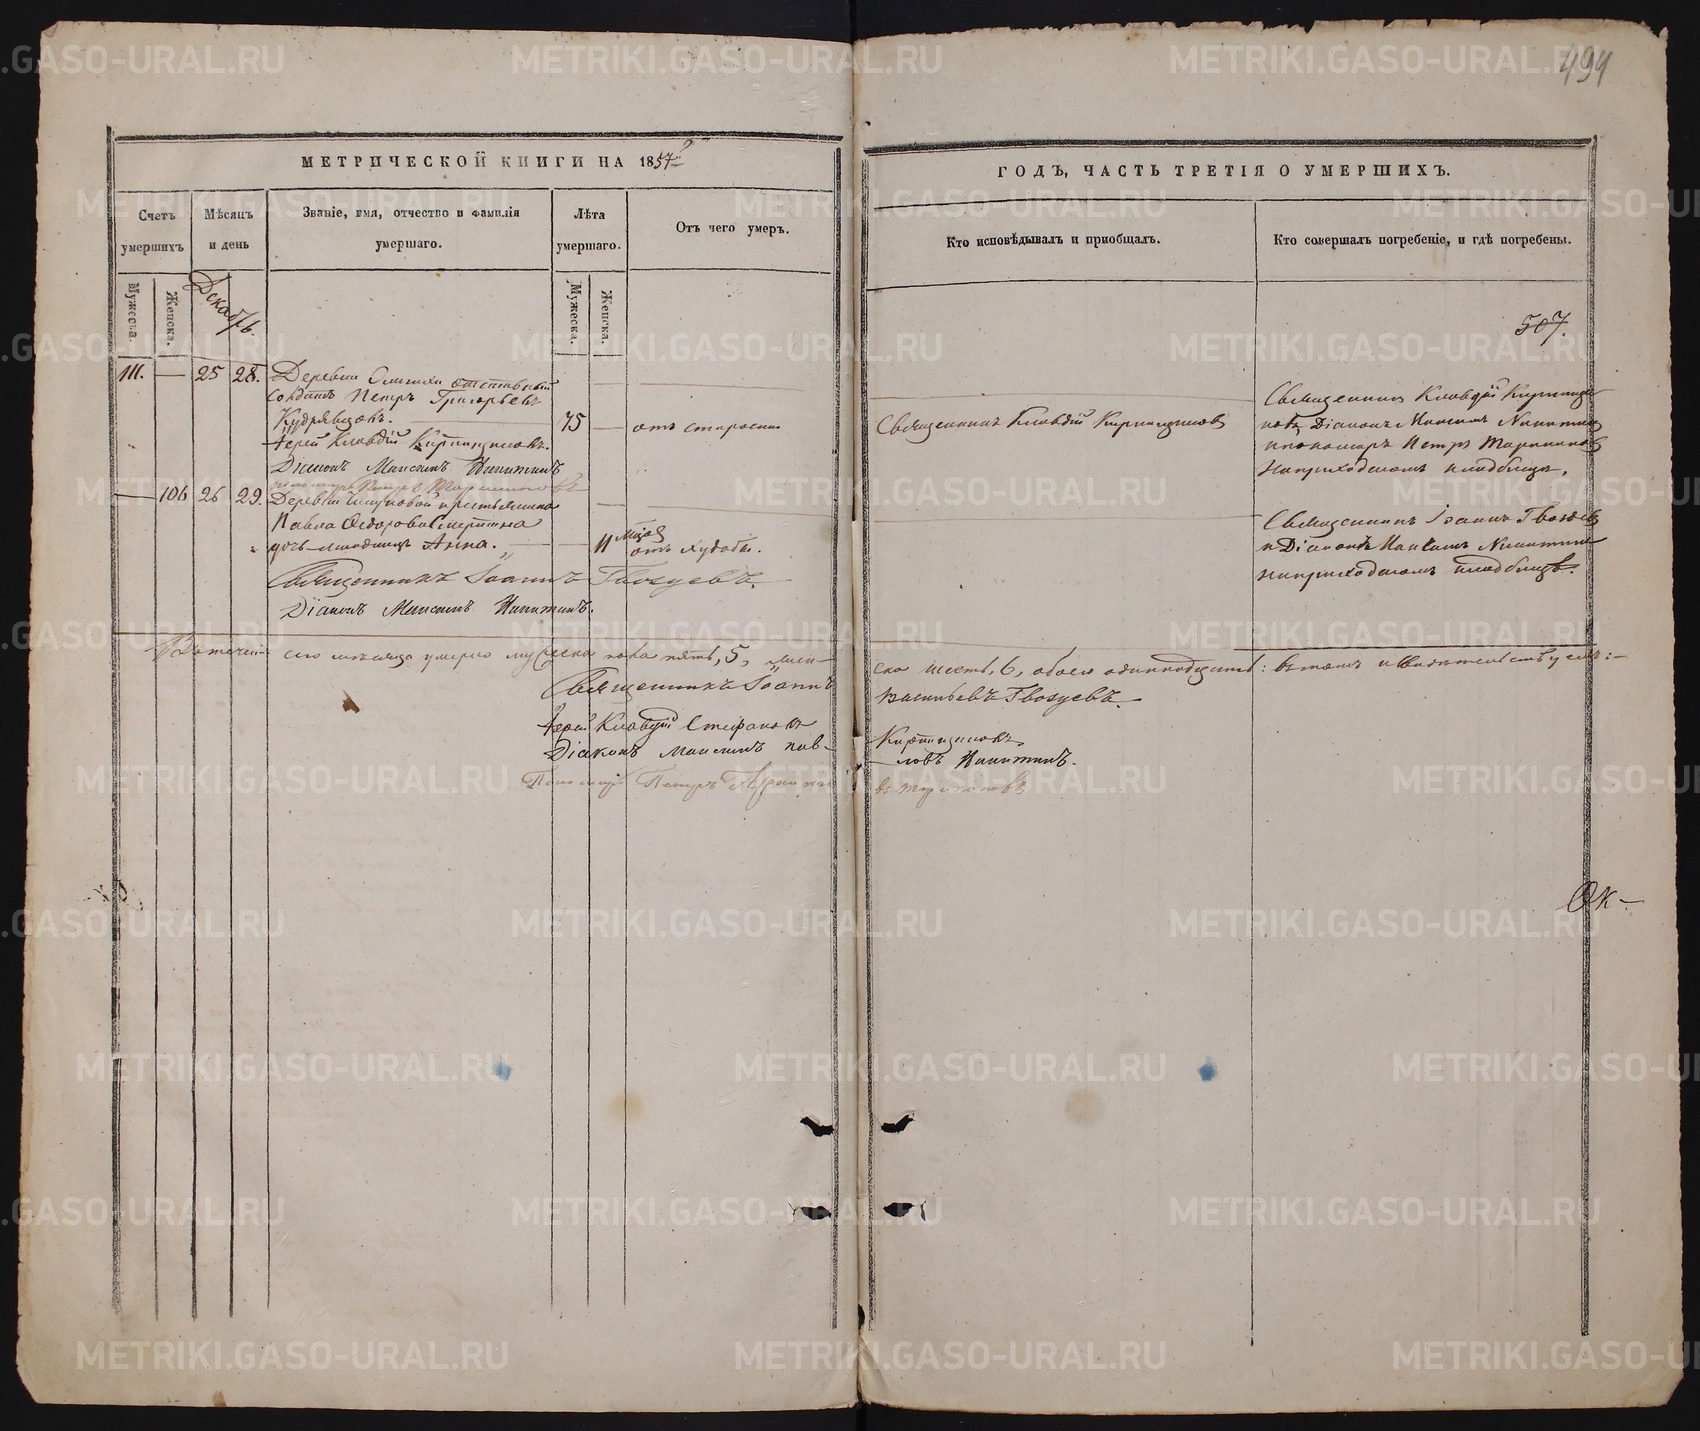 494
МЕТРИЧЕСКОЙ КНИГИ НА 1857
ГОДЪ, ЧАСТЬ ТРЕТІЯ О УМЕРШИХЪ.
Счетъ умершихъ
Мѣсяцъ и день
Званіе, имя, отчество и фамилія умершаго.
Лѣта умершаго.
Отъ чего умеръ.
Кто исповѣдывалъ и приобщалъ.
Кто совершалъ погребеніе, и гдѣ погребены.
Мужеска.
Женска.
Декабрь.
Мужеска.
Женска.
507.
111. — 25 28. Деревни отставный
солдатъ Петръ Григорьевъ
Кудрявцовъ. 75 — отъ старости
Священникъ Клавдій Кирпищиковъ
Священникъ Клавдій Кирпищи-
ковъ Діаконъ Максимъ Никитинъ
и пономарь Петръ
на приходскомъ кладбищѣ.
Іерей Клавдій Кирпищиковъ.
Діаконъ Максимъ Никитинъ
Пономарь Петръ
— 106 26 29. Деревни крестьянина
Павла Ѳедорова
дочь младенецъ Анна. — 11 мѣсяц. отъ худобы.
Священникъ Іоаннъ Гвоздевъ
и Діаконъ Максимъ Никитинъ
на приходскомъ кладбищѣ.
Священникъ Іоаннъ Гвоздевъ.
Діаконъ Максимъ Никитинъ.
Въ теченіи сего мѣсяца умерло мужеска пола пять, 5, жен-
ска шесть, 6, обоего одиннадцать: въ томъ и свидѣтельствуемъ:—
Священникъ Іоаннъ
Васильевъ Гвоздевъ.
Іерей Клавдій Стефановъ
Кирпищиковъ
Діаконъ Максимъ Пав-
ловъ Никитинъ.
Пономарь Петръ
Ок-
METRIKI.GASO-URAL.RU